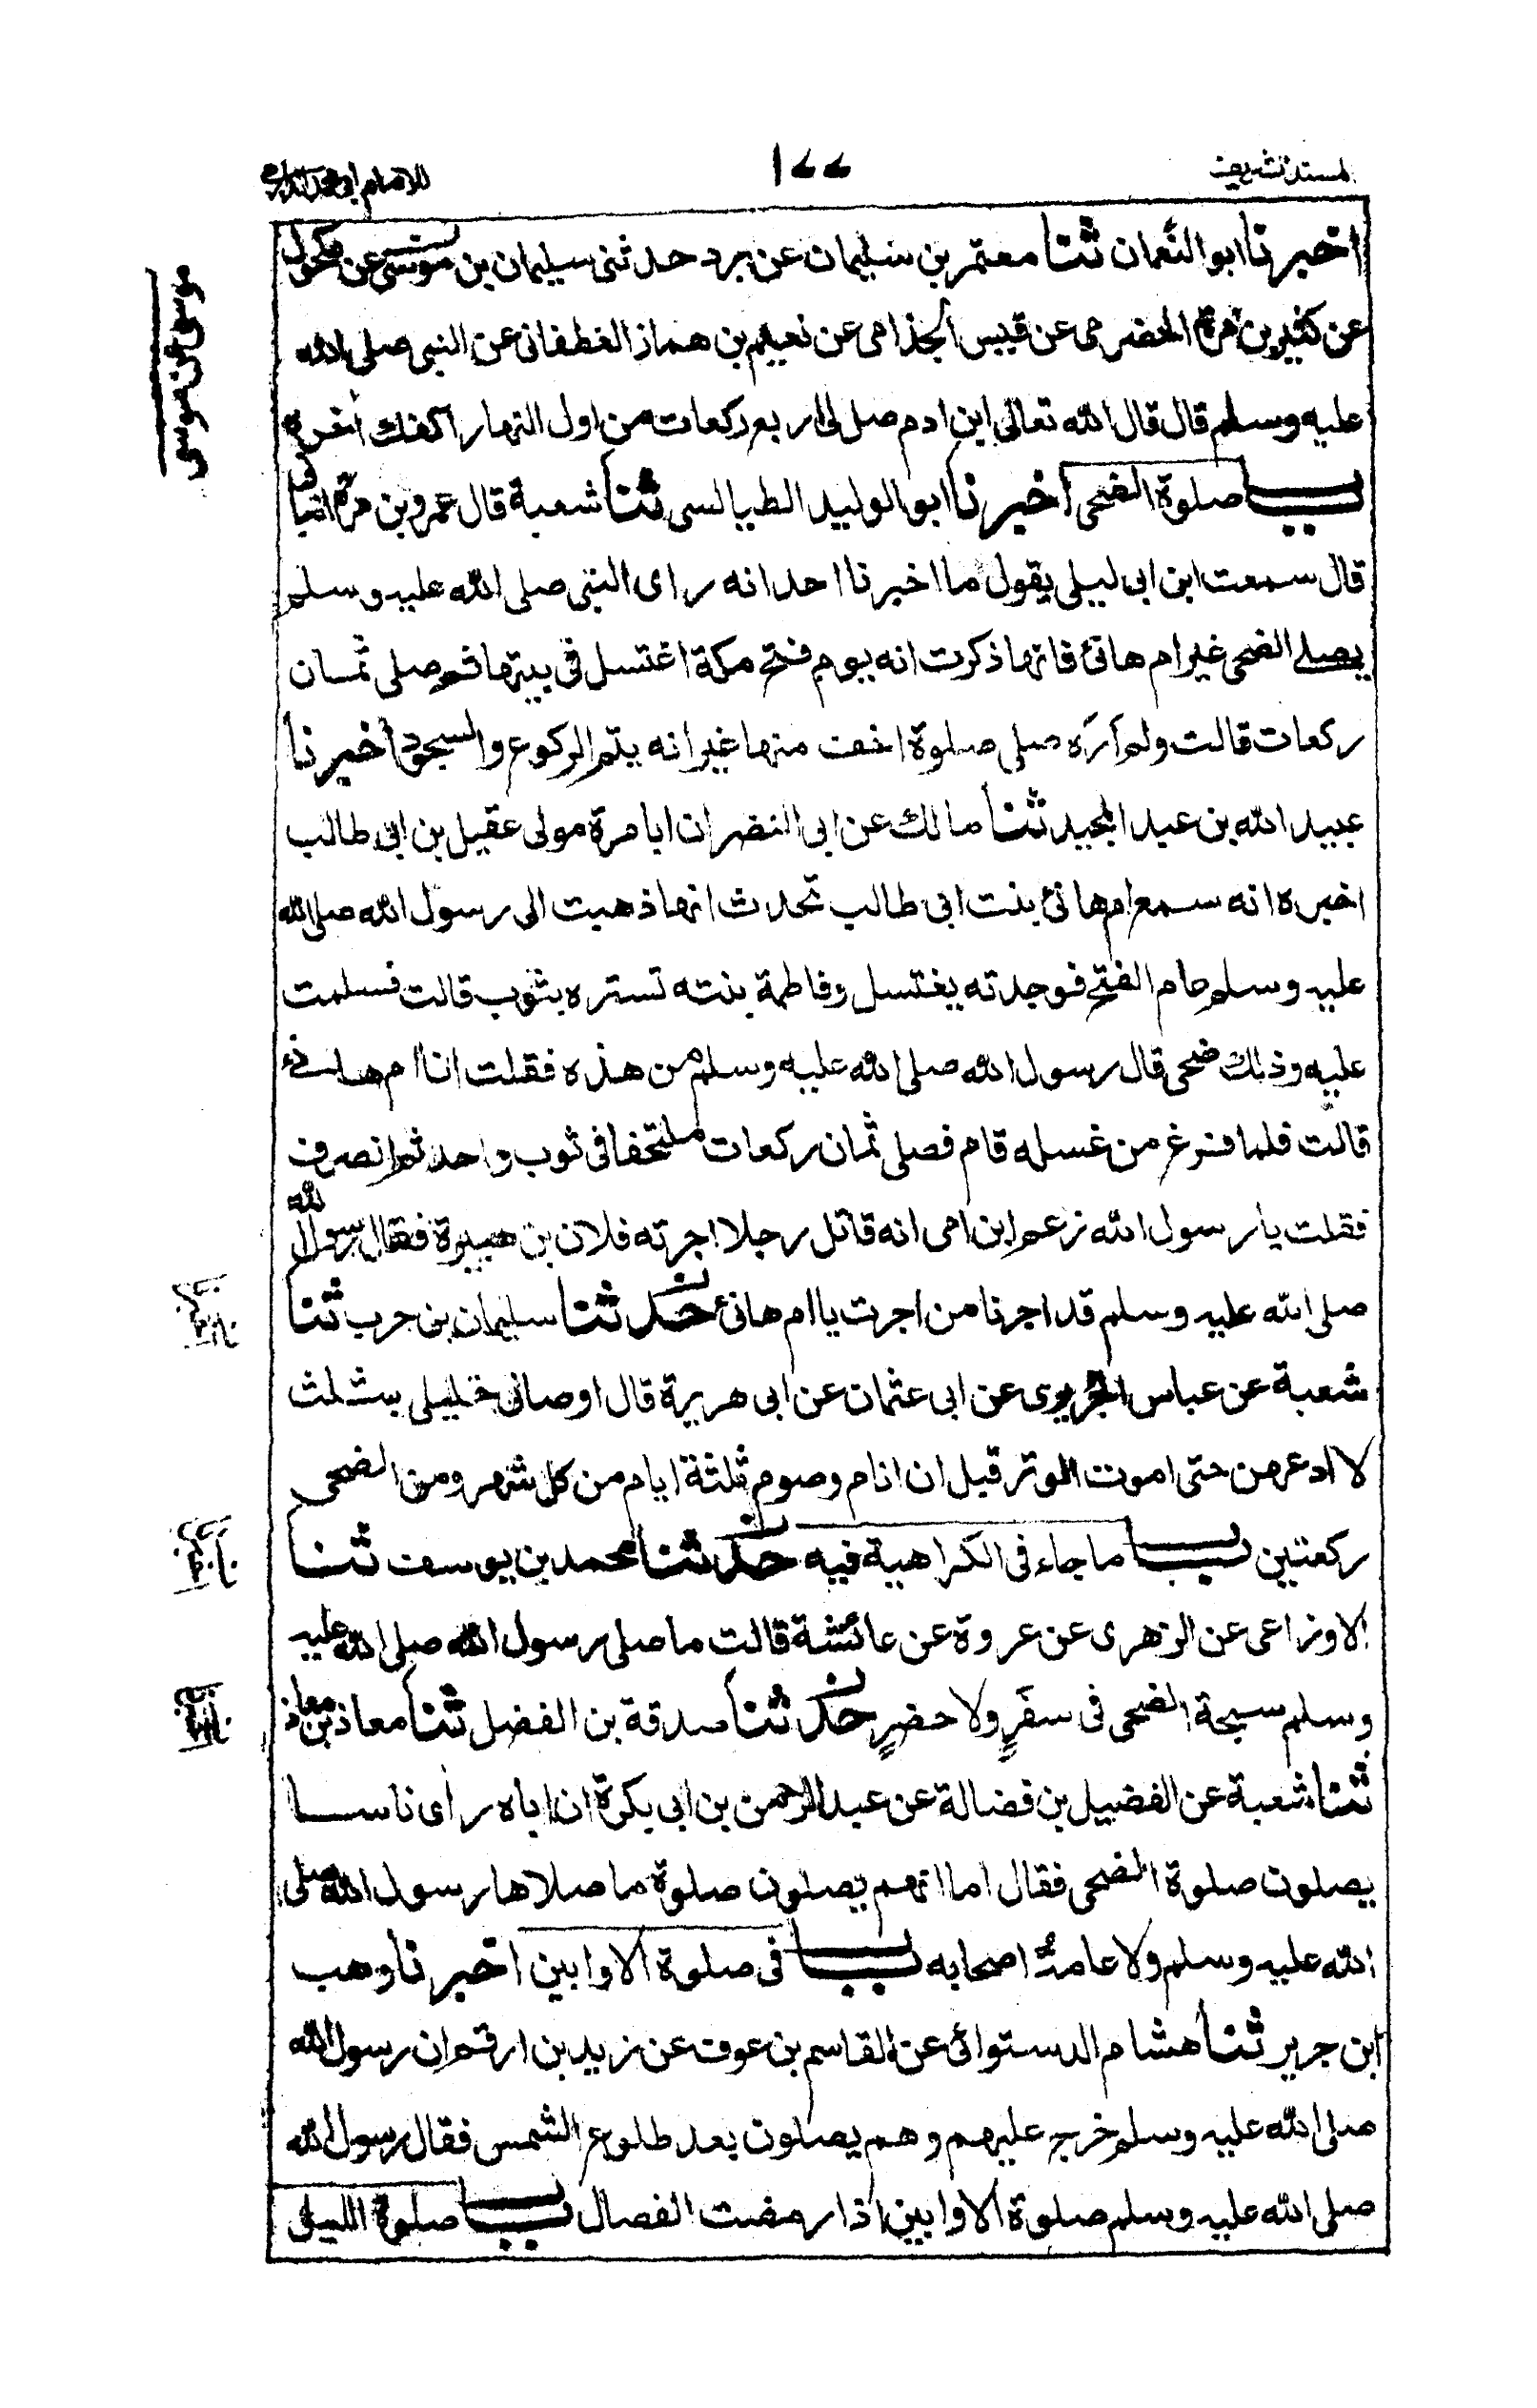 المسند الشريف
١٧٧
للامام ابی محمد الدارمی
اخبرنا ابو النعمان ثنا معتمر بن سليمان عن برد حدثنی سليمان بن موسی عن مكحول
عن كثير بن مرة الحضرمی عن قيس الجذامی عن نعيم بن هماز الغطفانی عن النبی صلی الله
عليه وسلم قال قال الله تعالی ابن ادم صل لی اربع ركعات من اول النهار اكفك اخره
باب صلوة الضحی اخبرنا ابو الوليد الطيالسی ثنا شعبة قال عمرو بن مرة انبانی
قال سمعت ابن ابی ليلی يقول ما اخبرنا احد انه رای النبی صلی الله عليه وسلم
يصلے الضحی غير ام هانئ فانها ذكرت انه يوم فتح مكة اغتسل فی بيتها ثم صلی ثمان
ركعات قالت ولم اَرَه صلی صلوة اخف منها غير انه يتم الركوع والسجود اخبرنا
عبيد الله بن عبد المجيد ثنا مالك عن ابی النضر ان ابا مرة مولی عقيل بن ابی طالب
اخبره انه سمع ام هانئ بنت ابی طالب تحدث انها ذهبت الی رسول الله صلی الله
عليه وسلم عام الفتح فوجدته يغتسل وفاطمة بنته تستره بثوب قالت فسلمت
عليه وذلك ضحی قال رسول الله صلی الله عليه وسلم من هذه فقلت انا ام هانئ
قالت فلما فرغ من غسله قام فصلی ثمان ركعات ملتحفا فی ثوب واحد ثم انصرف
فقلت يا رسول الله زعم ابن امی انه قاتل رجلا اجرته فلان بن هبيرة فقال رسول الله
صلی الله عليه وسلم قد اجرنا من اجرت يا ام هانئ حدثنا سليمان بن حرب ثنا
شعبة عن عباس الجريری عن ابی عثمان عن ابی هريرة قال اوصانی خليلی بثلث
لا ادعهن حتی اموت الوتر قبل ان انام وصوم ثلثة ايام من كل شهر ومن الضحی
ركعتين باب ما جاء فی الكراهية فيه حدثنا محمد بن يوسف ثنا
الاوزاعی عن الزهری عن عروة عن عائشة قالت ما صلی رسول الله صلی الله عليه
وسلم سبحة الضحی فی سفَرٍ ولا حضرٍ حدثنا صدقة بن الفضل ثنا معاذ بن معاذ
ثنا شعبة عن الفضيل بن فضالة عن عبد الرحمن بن ابی بكرة ان اباه رأی ناسا
يصلون صلوة الضحی فقال اما انهم يصلون صلوة ما صلاها رسول الله صلی
الله عليه وسلم ولا عامةُ اصحابه باب فی صلوة الاوابين اخبرنا وهب
ابن جرير ثنا هشام الدستوائی عن القاسم بن عوف عن زيد بن ارقم ان رسول الله
صلی الله عليه وسلم خرج عليهم وهم يصلون بعد طلوع الشمس فقال رسول الله
صلی الله عليه وسلم صلوة الاوابين اذا رمضت الفصال باب صلوة الليل